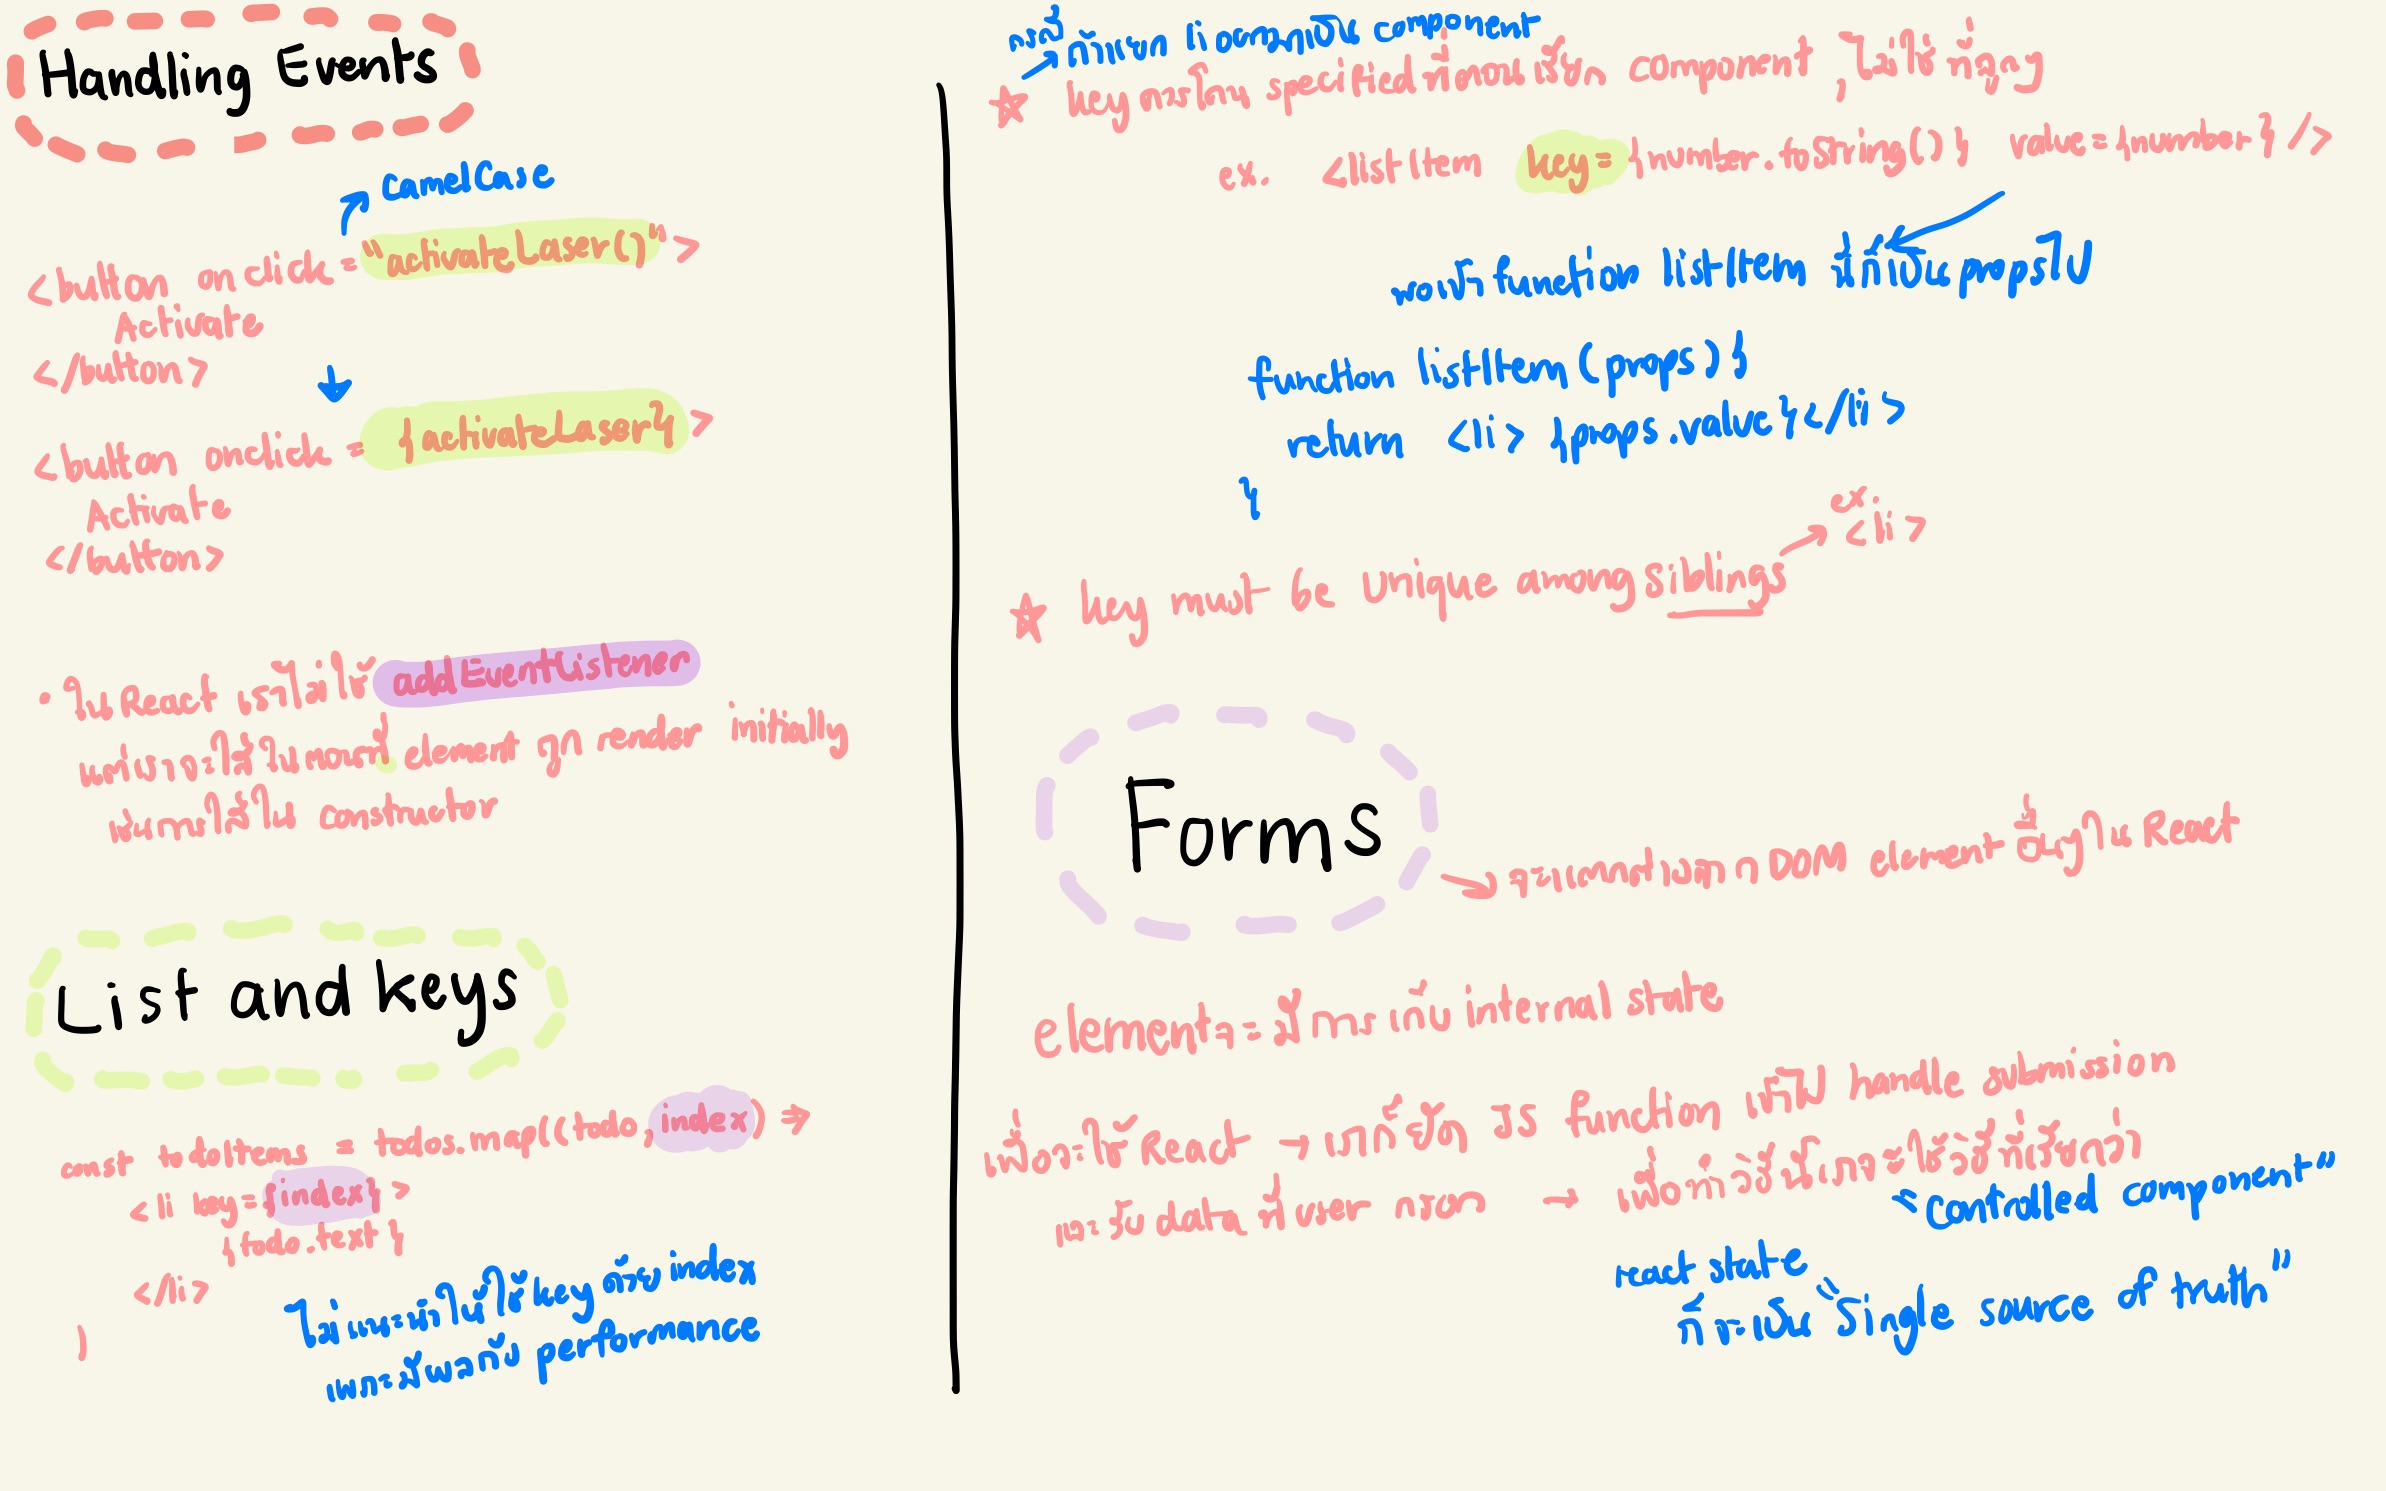 Handling Events
camelCase
<button onclick = "activateLaser()" >
Activate
</button>
<button onclick = {activateLaser} >
Activate
</button>
• ใน React เราไม่ใช้ addEventListener
แต่เราจะใส่ในตอนที่ element ถูก render initially
เช่นการใส่ใน constructor
List and keys
const todoItems = todos.map((todo, index) =>
<li key={index} >
{todo.text}
</li>
)
ไม่แนะนำให้ใช้ key ด้วย index
เพราะมีผลกับ performance
กรณี ถ้าแยก li ออกมาเป็น component
☆ key ควรโดน specified ที่ตอนเรียก component , ไม่ใช่ที่ลูกๆ
ex. <listItem key={number.toString()} value={number} />
พอเข้า function listItem นี่ก็เป็น props ไป
function listItem (props) {
return <li> {props.value} </li>
}
ex.
<li>
☆ key must be unique among siblings
Forms
→ จะแตกต่างจาก DOM element อื่นๆ ใน React
element จะมีการเก็บ internal state
เพื่อจะใช้ React → เราก็ยัด JS function เข้าไป handle submission
และรับ data ที่ user กรอก → เพื่อทำวิธีนี้เราจะใช้วิธีที่เรียกว่า
"controlled component"
react state
ก็จะเป็น "single source of truth"